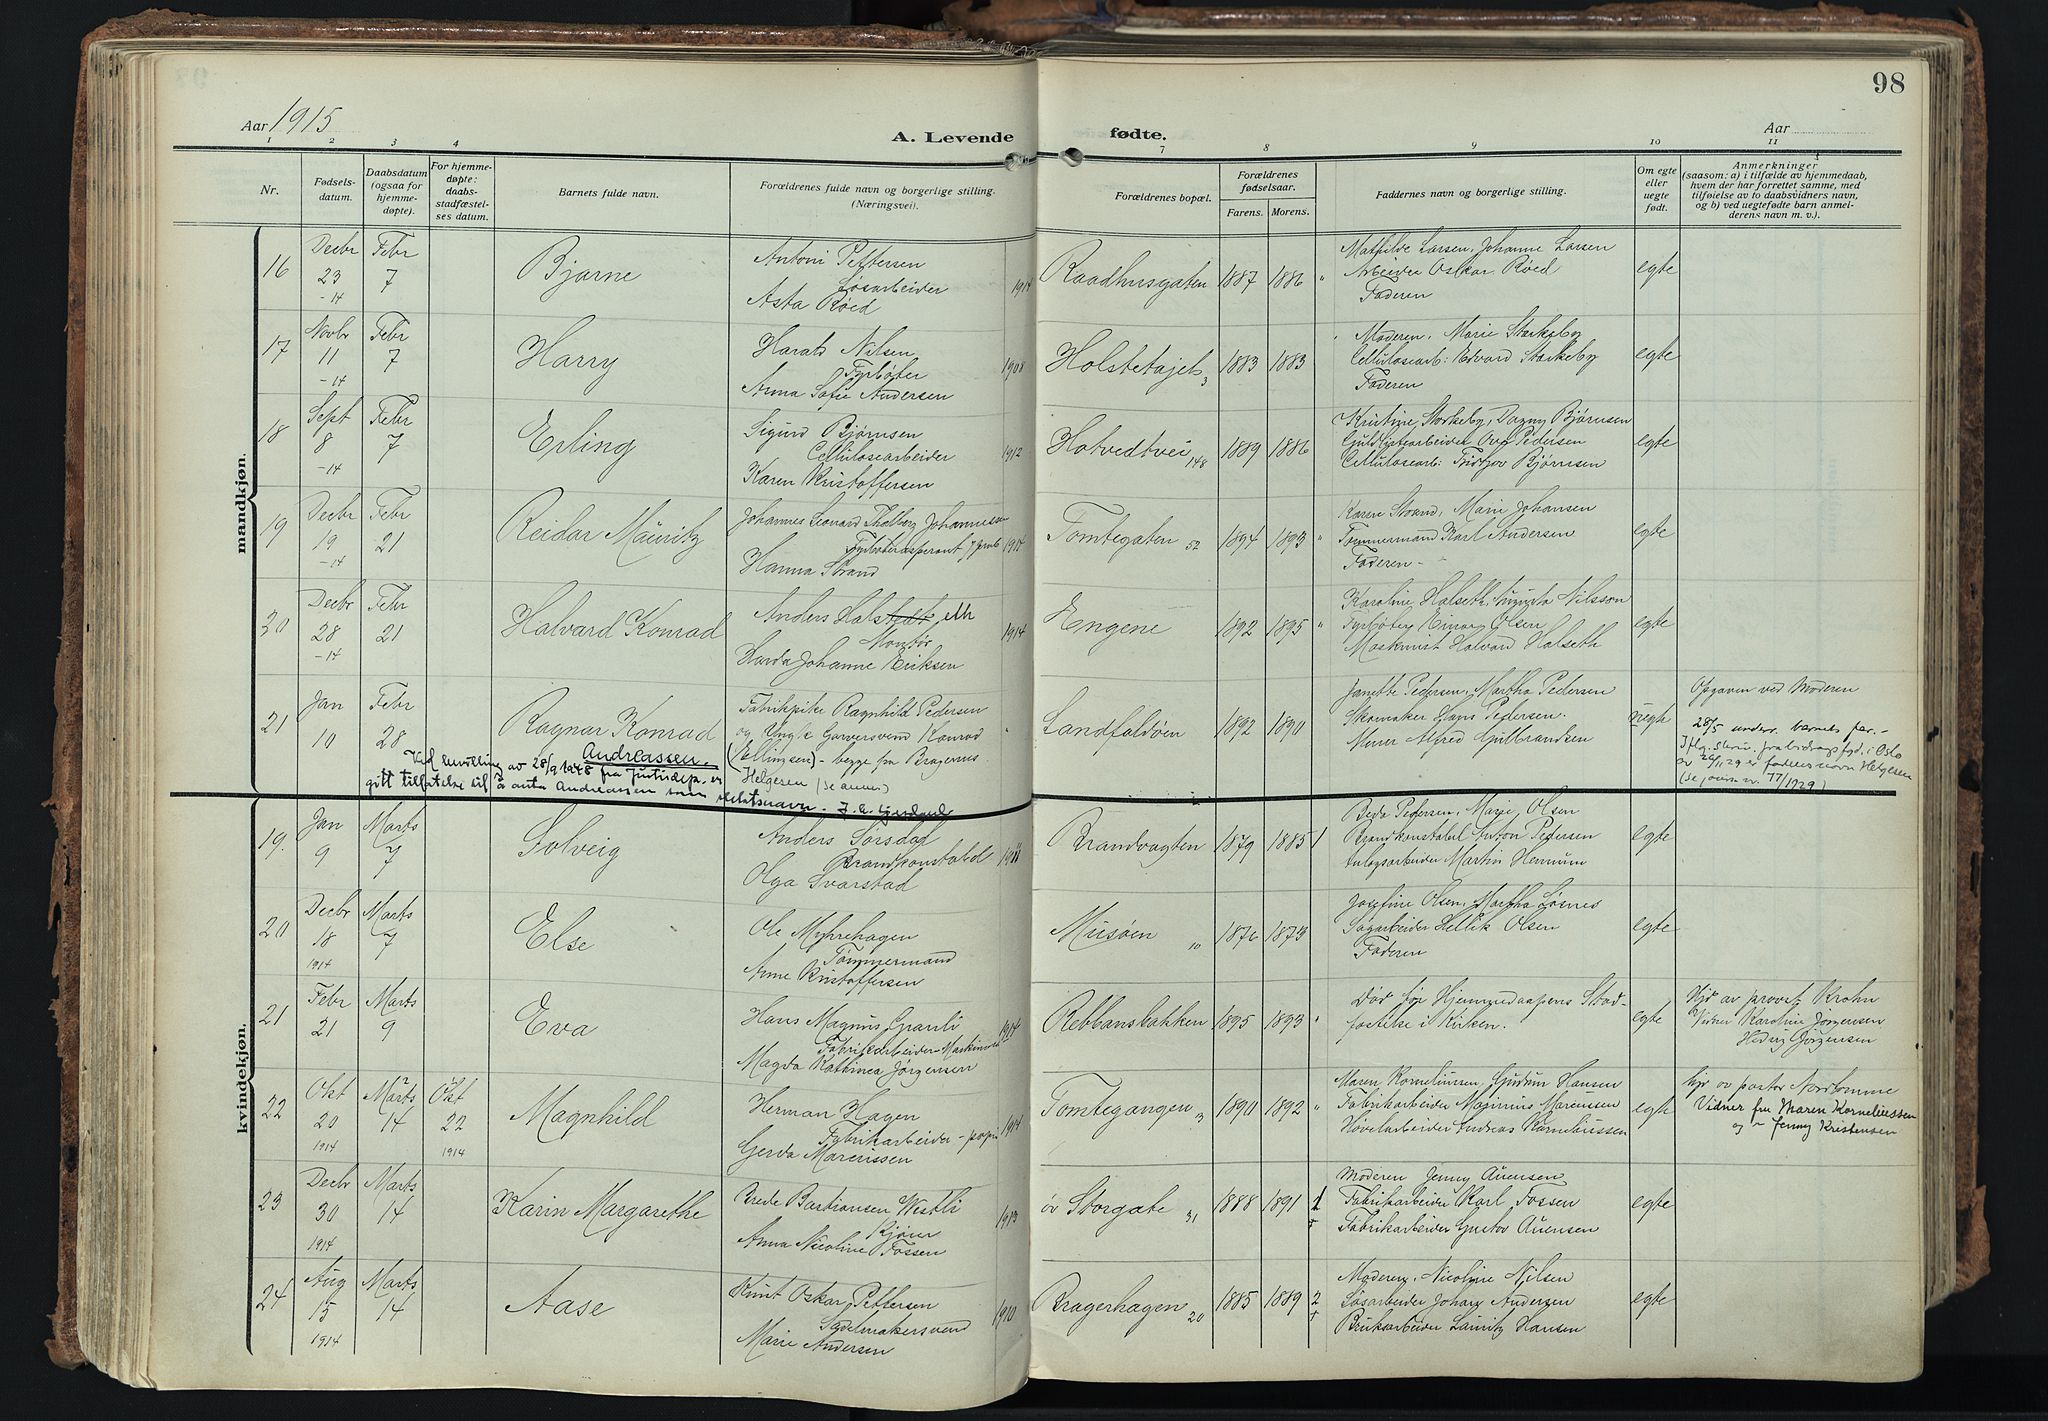 98
Aar 1915
A. Levende fødte.
Aar
1 2 3 4 7 8 9 10 11
Nr.
Fødsels-
datum.
Daabsdatum
(ogsaa for
hjemme-
døpte).
For hjemme-
døpte:
daabs-
stadfæstel-
ses datum.
Barnets fulde navn.
Forældrenes fulde navn og borgerlige stilling.
(Næringsvei).
Forældrenes bopæl.
Forældrenes
fødselsaar.
Farens. Morens.
Faddernes navn og borgerlige stilling.
Om egte
eller
uegte
født.
Anmerkninger
(saasom: a) i tilfælde av hjemmedaab,
hvem der har forrettet samme, med
tilføielse av to daabsvidners navn,
og b) ved uegtefødte barn anmel-
derens navn m. v.).
mandkjøn.
16 Decbr 23 -14 Febr 7 Bjarne
Antoni Pettersen
Løsarbeider
Asta Røed
1914 Raadhusgaten 1887 1886 "
Mathilde Larsen, Johanne Larsen
Arbeider Oskar Røed
Faderen
egte
17 Novbr 11 -14 Febr 7 Harry
Harals Nilsen
Fyrbøter
Anna Sofie Andersen
1908 Holstetajet 3 1883 1883
Moderen, Marie Storkeby
Cellulosearb: Edvard Storkeby
Faderen
egte
18 Sept 8 -14 Febr 7 Erling
Sigurd Bjørnsen
Cellulosearbeider
Karen Kristoffersen
1912 Hotvedtvei 148 1889 1886
Kristine Storkeby, Dagny Bjørnsen
Guldlistearbeider Ove Pedersen
Cellulosearb: Fridtjov Bjørnsen
egte
19 Decbr 19 -14 Febr 21 Reidar Mauritz
Johannes Leonard Thalberg Johannessen
Fyrbøteraspirant
Hanna Strand
1914 Tomtegaten 52 1894 1893 "
Karen Strand, Marie Johansen
Tømmermand Karl Andersen
Faderen -
egte
20 Decbr 28 -14 Febr 21 Halvard Konrad
Anders Halstedt, eth
Montør
Harda Johanne Eriksen
1914 Engene 1892 1895 "
Karoline Halseth, Augusta Nilsson
Fyrbøter Einar Olsen
Maskinist Halvard Halseth
egte
21 Jan 10 Febr 28 Ragnar Konrad
Andreassen.
Fabrikpike Ragnhild Pedersen
og Ungk Garversvend Konrad
(Ellingsen) - begge fra Bragernes
Helgesen (se anm.)
Ved bevilling av 28/9 1948 fra Justisdep. er
gitt tillatelse til å anta Andreassen som slektsnavn.
" Landfaldøen 1892 1890 "
Janette Pedersen, Martha Pedersen
Skomaker Hans Pedersen.
Murer Alfred Gulbrandsen
uegte
Opgaven ved Moderen
28/5 underr. barnets far.-
Iflg. skriv. fra bidragsfgd. i Oslo
av 26/11 29 er faderens navn Helgesen
(se journ nr. 77/1929)
kvindekjøn.
19. Jan 9 Marts 7 Solveig
Anders Sørsdal
Brandkonstabel
Olga Svarstad
Brandvagten 1879 1885 1
Beda Pedersen, Marie Olsen
Brandkonstabel Anton Pedersen
Anlægsarbeider Martin Hennum
egte
20 Decbr 18 1914 Marts 7 Else
Ole Myhrehagen
Tømmermand
Anne Kristoffersen
Musøen 10 1876 1873
Josefine Olsen, Martha Løsnes
Sagarbeider Hellik Olsen
Faderen
egte
21 Febr 21 Marts 9 Eva
Hans Magnus Granli
Fabrikarbeider-
Magda Kathinca Jørgensen
1914 Rebbansbakken 1895 1893 "
Død før Hjemmedaapens Stad-
fæstelse i Kirken.
egte
Hjd av provst Krohn
Vidner Karoline Jørgensen
Hedvig Jørgensen
22 Okt 20 1914 Marts 14 Okt 22 1914 Magnhild
Herman Hagen
Fabrikarbeider - papir
Gerda Marcussen
1914 Tomtegangen 13 1890 1892 "
Maren Korneliussen, Gudrun Hansen
Fabrikarbeider Maximius Marcussen
Høvelarbeider Andreas Korneliussen
egte
hjd av pastor Nordtømme
Vidner fru Maren Korneliussen
og - Jenny Kristensen
23 Decbr 30 1914 Marts 14 Karin Margarethe
Brede Bastiansen Westli
Kjører
Anna Nicoline Fossen
1913 øv Storgate 31 1888 1891 1 +
Moderen Jenny Auensen
Fabrikarbeider Karl Fossen
Fabrikarbeider Gustav Auensen
egte
24 Aug 15 1914 Marts 14 Aase
Knut Oskar Pettersen
Sadelmakersvend
Marie Andersen
1910 Bragerhagen 20 1885 1889 2 +
Moderen, Nicoline Nilsen
Løsarbeider Johan Andersen
Bruksarbeider Lauritz Hansen
egte